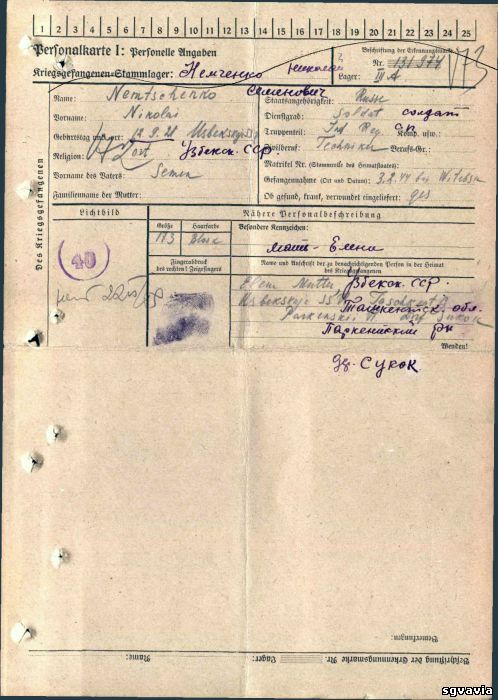 1 2 3 4 5 6 7 8 9 10 11 12 13 14 15 16 17 18 19 20 21 22 23 24 25
Personalkarte I: Personelle Angaben
Beschriftung der Erkennungsmarke
Kriegsgefangenen-Stammlager: Немченко Николай
Nr. 131374
Lager: III A
V73
Семенович
Name: Nemtschenko
Staatsangehörigkeit: Russe
Vorname: Nikolai
Dienstgrad: Soldat солдат
Geburtstag und -ort:
Truppenteil: Inf. Reg. Komp. usw.:
Узбекск. ССР
Religion:
Zivilberuf: Techniker Berufs-Gr.:
Matrikel Nr. (Stammrolle des Heimatstaates):
Vorname des Vaters: Semen
Gefangennahme (Ort und Datum): 3.2.44 bei Witebsk
Familienname der Mutter:
Ob gesund, krank, verwundet eingeliefert: ges
Des Kriegsgefangenen
Lichtbild
Nähere Personalbeschreibung
Größe Haarfarbe Besondere Kennzeichen:
173
мать - Елена
40
Fingerabdruck des rechten! Zeigefingers
Name und Anschrift der zu benachrichtigenden Person in der Heimat des Kriegsgefangenen
Mutter, Узбекск. ССР
Usbekskaje SSR Taschkent
Ташкентск. обл.
Паркентский рн
Wenden!
дер. Сукок
Bemerkungen:
Beschriftung der Erkennungsmarke Nr. Lager:
sgvavia